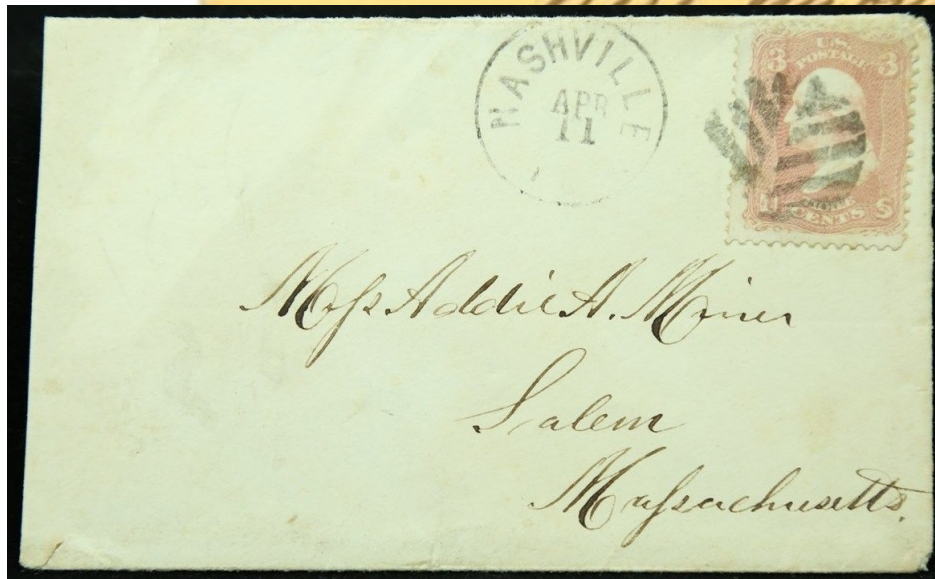 NASHVILLE
APR
11
3 U.S. 3
POSTAGE
U S
CENTS
Miss Addie A. Miner
Salem
Massachusetts.